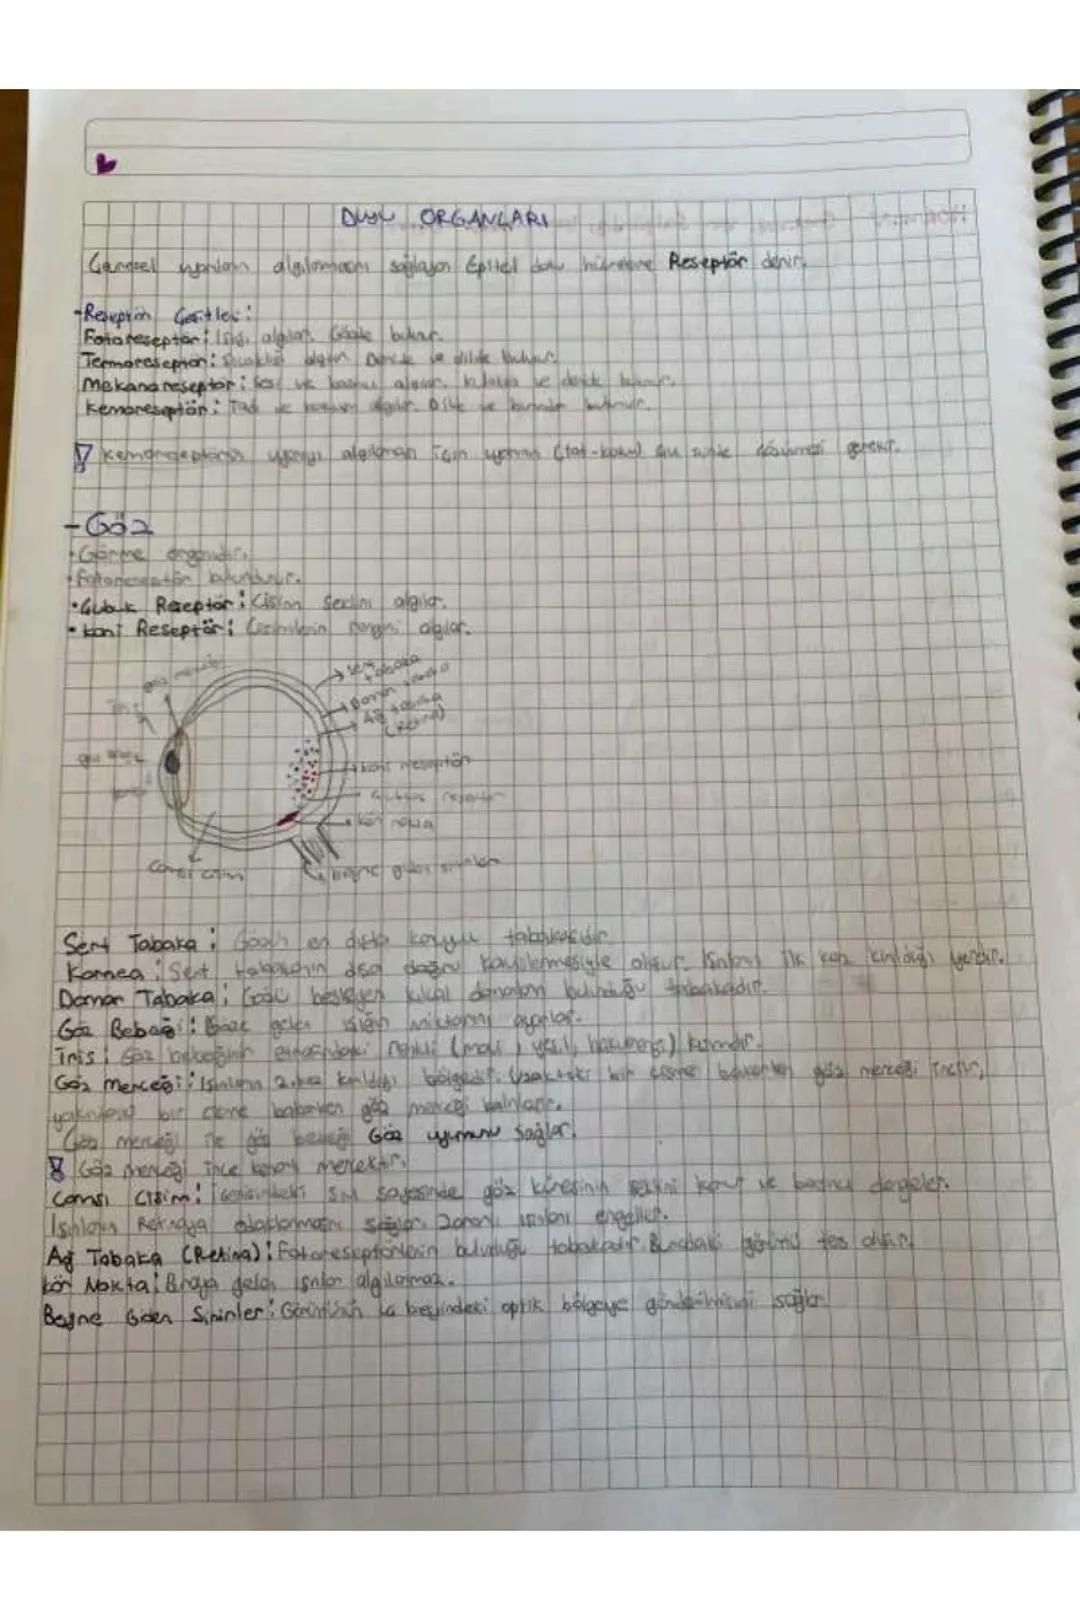 DUYU ORGANLARI
Çevresel uyarıların algılanmasını sağlayan Epitel doku hücrelerine Reseptör denir.
-Reseptör Çeşitleri:
Fotoreseptör: Işığı algılar. Gözde bulunur.
Termoreseptör: Sıcaklığı algılar. Deride ve dilde bulunur.
Mekanoreseptör: Ses ve basıncı algılar. Kulakta ve deride bulunur.
Kemoreseptör: Tadı ve kokuyu algılar. Dilde ve burunda bulunur.
Kemoreseptörün uyarıyı algılaması için uyarının (tat-koku) sıvı içinde çözünmesi gerekir.
-Göz
Görme organıdır.
Fotoreseptör bulundurur.
•Çubuk Reseptör: Cismin şeklini algılar.
•Koni Reseptör: Cisimlerin rengini algılar.
göz merceği
iris
göz bebeği
Sert tabaka
Damar tabaka
Ağ tabaka (Retina)
koni reseptör
Çubuk reseptör
kör nokta
camsı cisim
beyne giden sinirler
Sert Tabaka: Gözün en dışta koruyucu tabakasıdır.
Kornea: Sert tabakanın dışa doğru kavislenmesiyle oluşur. Işınların ilk kez kırıldığı yerdir.
Damar Tabaka: Gözü besleyen kılcal damarların bulunduğu tabakadır.
Göz Bebeği: Göze gelen ışığın miktarını ayarlar.
İris: Göz bebeğinin etrafındaki renkli (mavi, yeşil, kahverengi) kısımdır.
Göz merceği: Işınların 2. kez kırıldığı bölgedir. Uzaktaki bir cisme bakarken göz merceği incelir,
yakındaki bir cisme bakarken göz merceği kalınlaşır.
Göz merceği ile göz bebeği Göz uyumunu sağlar.
Göz merceği ince kenarlı mercektir.
Camsı Cisim: İçerisindeki sıvı sayesinde göz küresinin şeklini korur ve basıncı dengeler.
Işınların Retinaya odaklanmasını sağlar. Zararlı ışınları engeller.
Ağ Tabaka (Retina): Fotoreseptörlerin bulunduğu tabakadır. Buradaki görüntü ters oluşur.
Kör Nokta: Buraya gelen ışınlar algılanmaz.
Beyne Giden Sinirler: Görüntünün beyindeki optik bölgeye gönderilmesini sağlar.